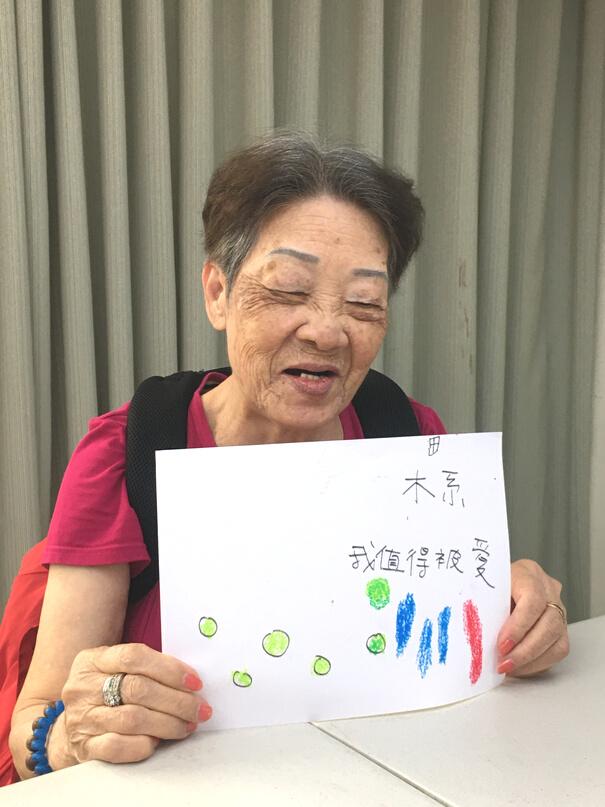 田
木系
我值得被愛